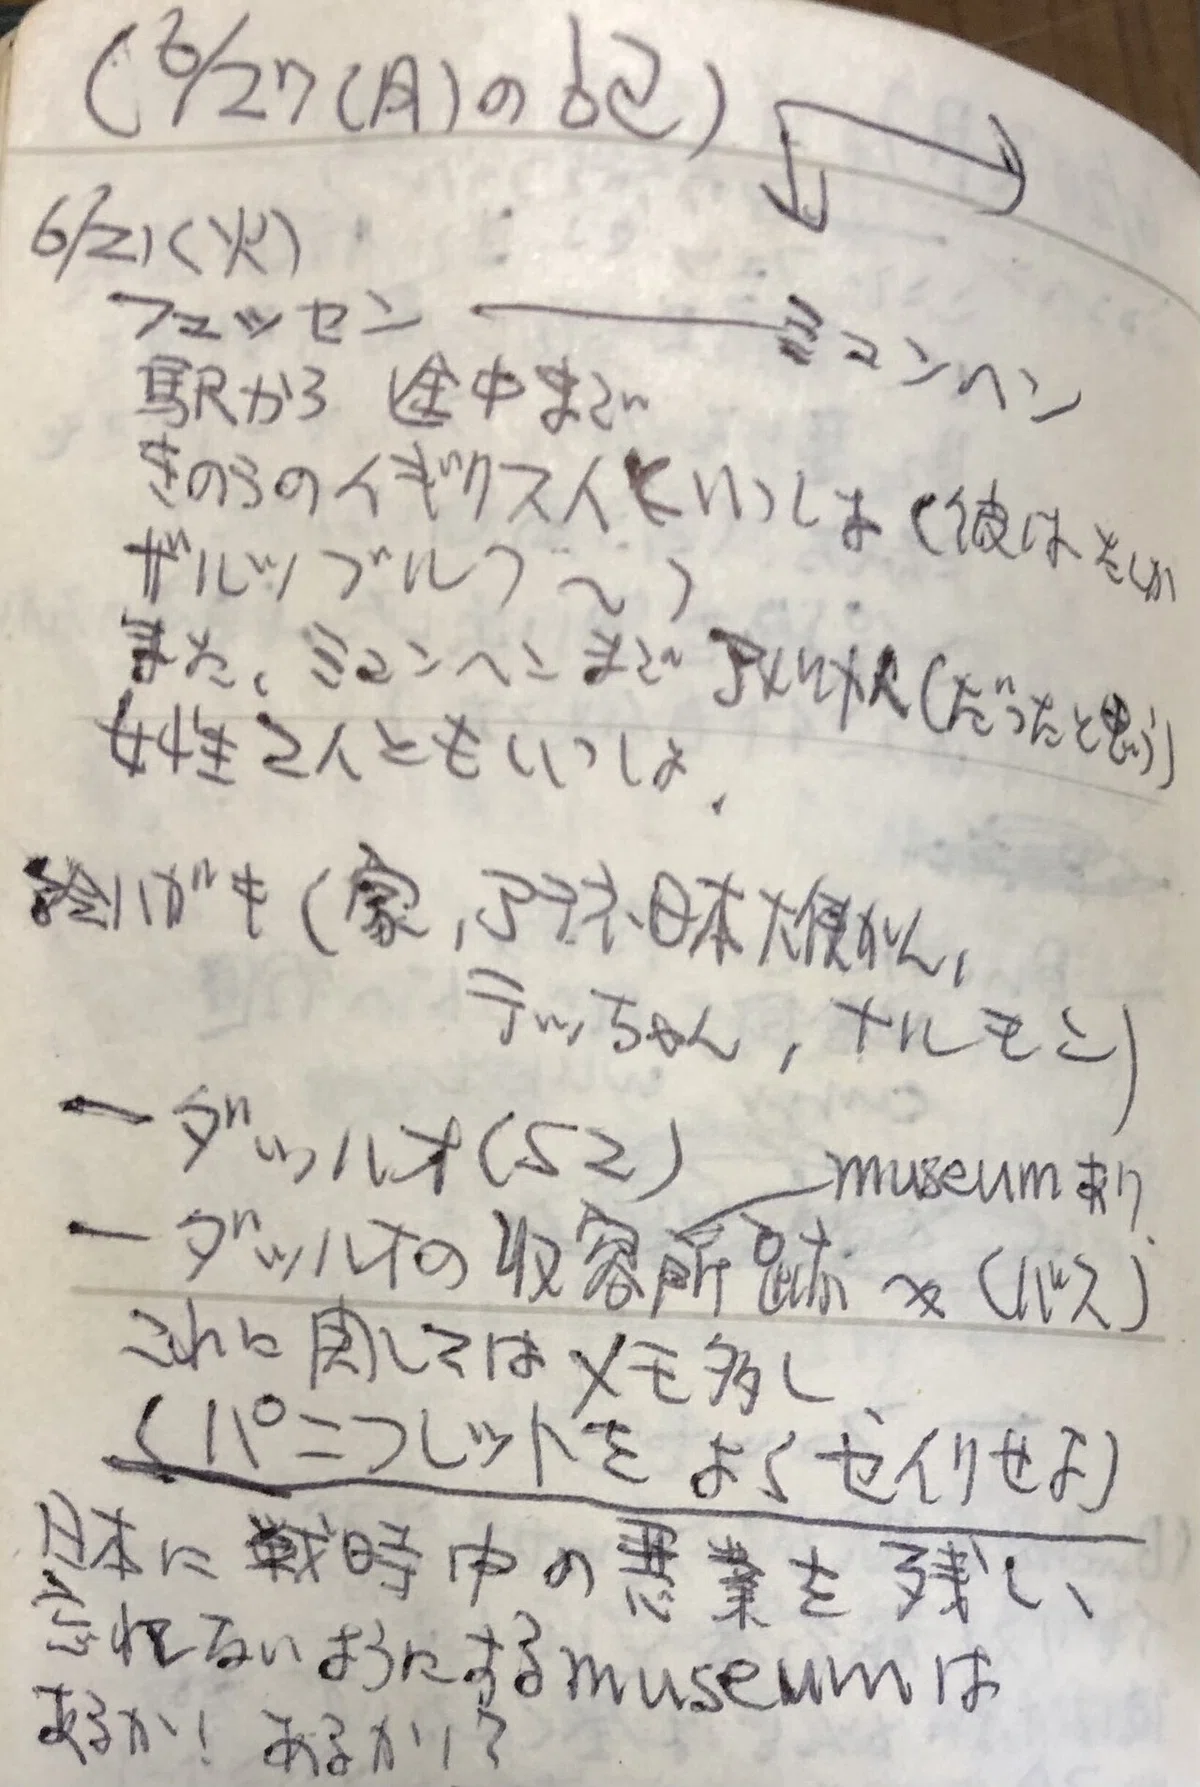 (6/27(月)の記)
6/21(火)
フュッセン — ミュンヘン
駅から 途中まで
きのうのイギリス人といっしょ(彼はたしか
ザルツブルクへ)
また、ミュンヘンまで アメリカ人(だったと思う)
女性2人ともいっしょ.
絵ハガキ(家,アテネ日本大使かん,
テッちゃん,ナルモン)
ーダッハオ(S2)
museumあり
ーダッハオの収容所跡へ(バス)
これに関してはメモ多し、
(パンフレットをよくセイリせよ)
日本に戦時中の悪業を残し、
忘れないようにするmuseumは
あるか! あるか!?